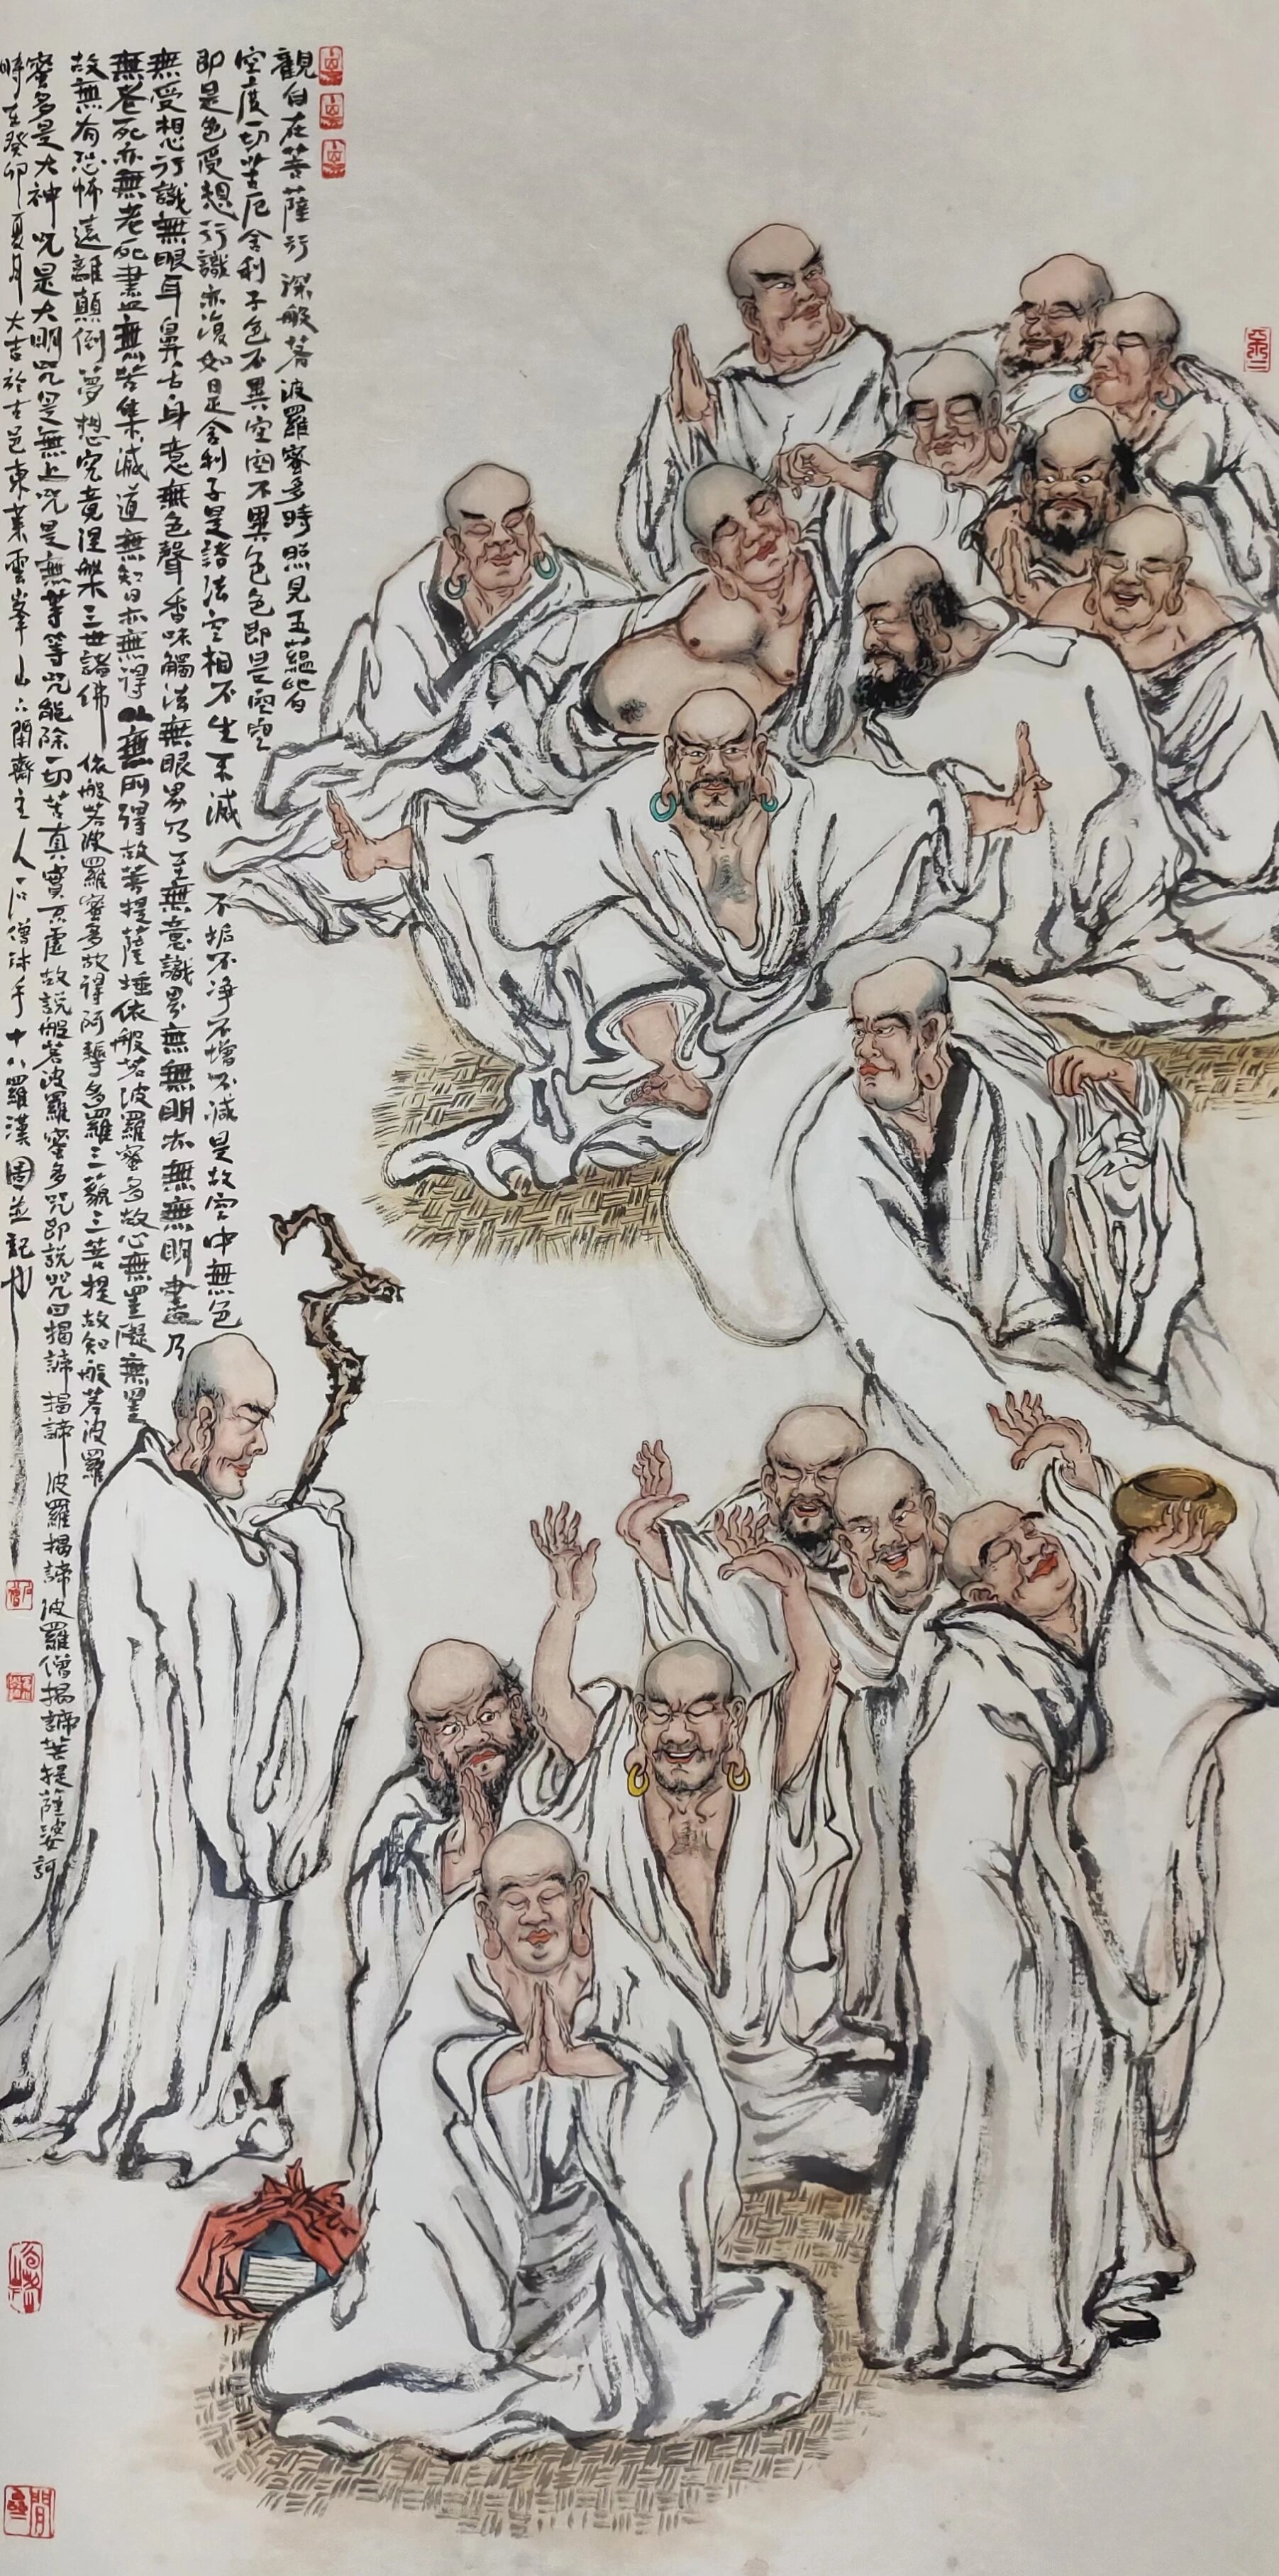 觀自在菩薩行深般若波羅蜜多時照見五蘊皆
空度一切苦厄舍利子色不異空空不異色色即是空空
即是色受想行識亦復如是舍利子是諸法空相不生不滅不垢不淨不增不減是故空中無色
無受想行識無眼耳鼻舌身意無色聲香味觸法無眼界乃至無意識界無無明亦無無明盡乃
無老死亦無老死盡無苦集滅道無智亦無得以無所得故菩提薩埵依般若波羅蜜多故心無罣礙無罣
故無有恐怖遠離顛倒夢想究竟涅槃三世諸佛依般若波羅蜜多故得阿耨多羅三藐三菩提故知般若波羅
蜜多是大神咒是大明咒是無上咒是無等等咒能除一切苦真實不虛故說般若波羅蜜多咒即說咒曰揭諦揭諦波羅揭諦波羅僧揭諦菩提薩婆訶
時在癸卯夏月大吉於古邑東萊雲峯山閑齋主人石僧沐手十八羅漢圖並記